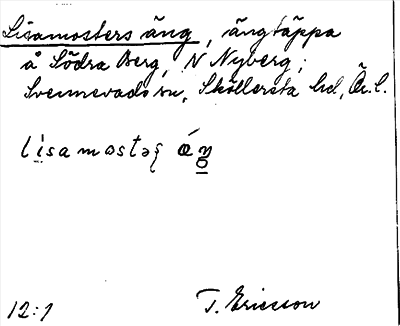 Lisamosters äng, ängtäppa
å Södra Berg, N Nyberg,
Svennevads sn, Sköllersta hd, Ör. l.
12:1 T. Ericsson